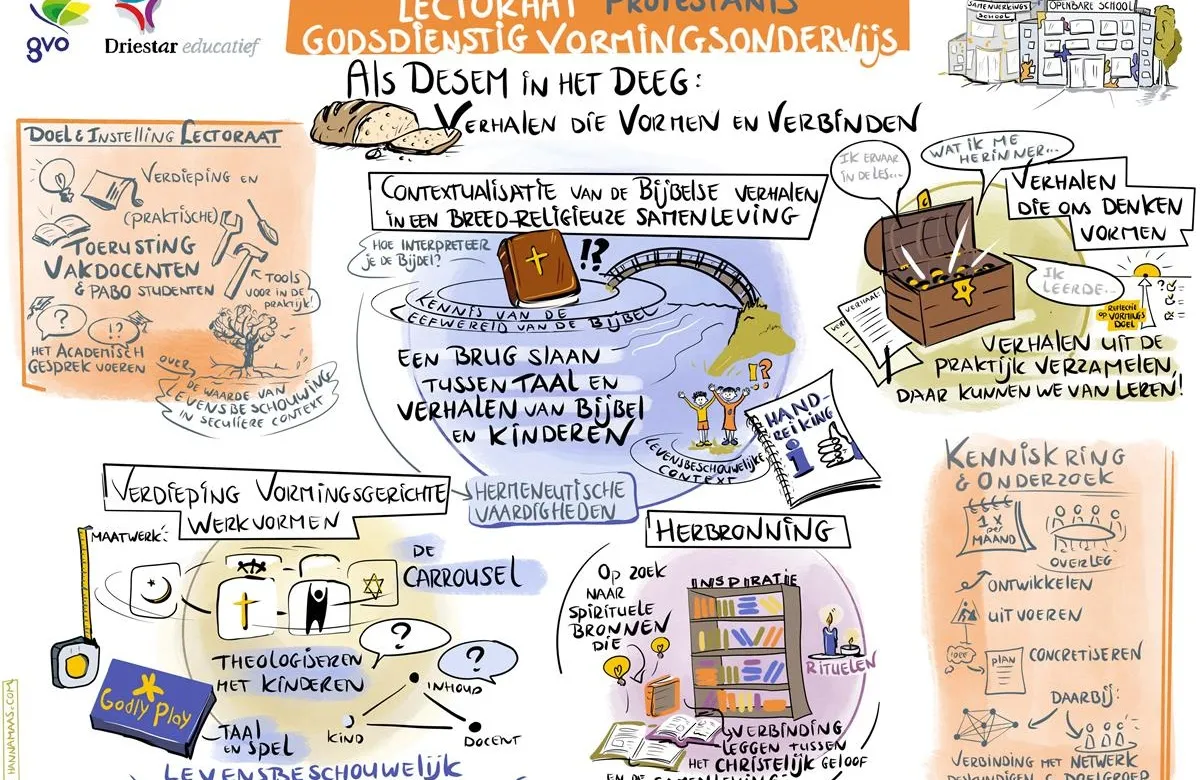 LECTORAAT PROTESTANTS
GODSDIENSTIG VORMINGSONDERWIJS
gvo
Driestar educatief
SAMENWERKINGS
SCHOOL
OPENBARE SCHOOL
ALS DESEM IN HET DEEG:
VERHALEN DIE VORMEN EN VERBINDEN
DOEL & INSTELLING LECTORAAT
VERDIEPING EN
(PRAKTISCHE)
TOERUSTING
VAKDOCENTEN
& PABO STUDENTEN
TOOLS
VOOR IN DE
PRAKTIJK!
?
!?
HET ACADEMISCH
GESPREK VOEREN
OVER
DE WAARDE VAN
LEVENSBESCHOUWING
IN SECULIERE CONTEXT
CONTEXTUALISATIE VAN DE BIJBELSE VERHALEN
IN EEN BREED-RELIGIEUZE SAMENLEVING
HOE INTERPRETEER
JE DE BIJBEL?
!?
KENNIS VAN DE
LEEFWERELD VAN DE BIJBEL
EEN BRUG SLAAN
TUSSEN TAAL EN
VERHALEN VAN BIJBEL
EN KINDEREN
!?
LEVENSBESCHOUWELIJKE
CONTEXT
HAND-
REIKING
i
IK ERVAAR
IN DE LES...
WAT IK ME
HERINNER...
VERHALEN
DIE ONS DENKEN
VORMEN
IK
LEERDE...
VERHAAL
REFLECTIE
OP VORMINGS
DOEL
VERHALEN UIT DE
PRAKTIJK VERZAMELEN,
DAAR KUNNEN WE VAN LEREN!
VERDIEPING VORMINGSGERICHTE
WERKVORMEN
HERMENEUTISCHE
VAARDIGHEDEN
MAATWERK:
DE
CARROUSEL
THEOLOGISEREN
MET KINDEREN
?
?
INHOUD
KIND
DOCENT
Godly Play
TAAL
EN SPEL
LEVENSBESCHOUWELIJK
HERBRONNING
OP ZOEK
NAAR
SPIRITUELE
BRONNEN
DIE
INSPIRATIE
RITUELEN
VERBINDING
LEGGEN TUSSEN
HET CHRISTELIJK GELOOF
EN DE SAMENLEVING
KENNISKRING
& ONDERZOEK
1 X
PER
MAAND
OVERLEG
ONTWIKKELEN
UITVOEREN
IDEE
PLAN
CONCRETISEREN
DAARBIJ:
VERBINDING MET NETWERK
HANNAMAAS.COM